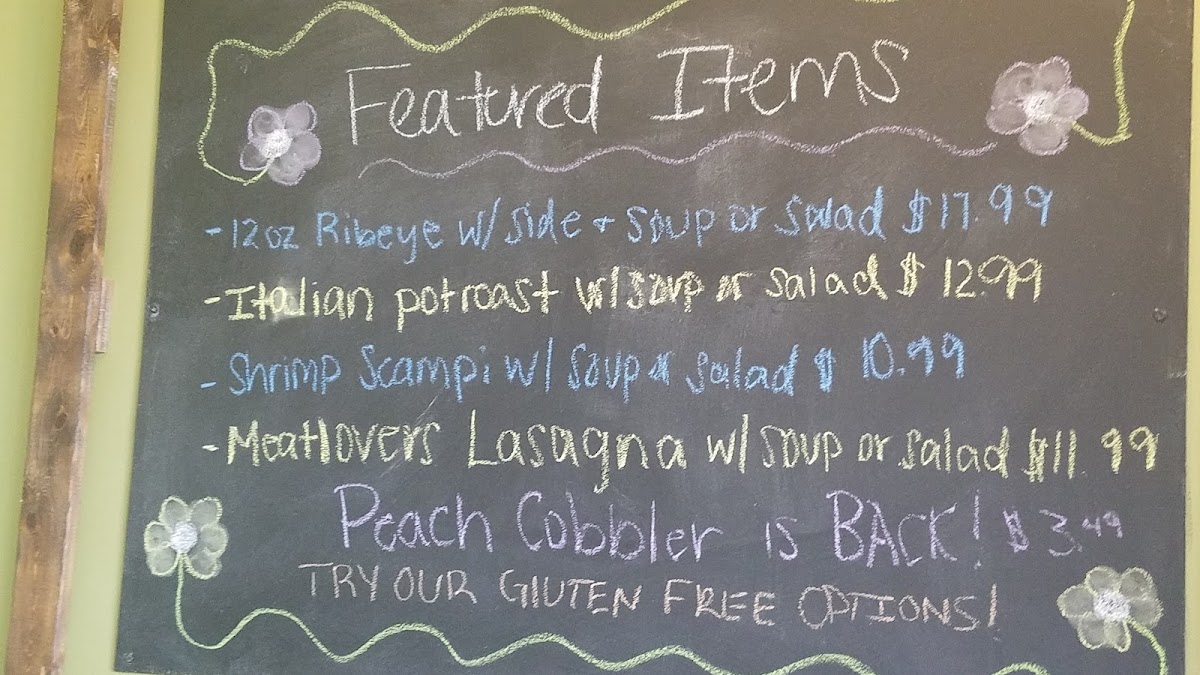 Featured Items
- 12oz Ribeye w/ side + soup or salad $17.99
- Italian potroast w/ soup or salad $ 12.99
- Shrimp Scampi w/ soup or salad $ 10.99
- Meatlovers Lasagna w/ soup or salad $11.99
Peach Cobbler is BACK! $ 3.49
TRY OUR GlUTEN FREE OPTIONS!